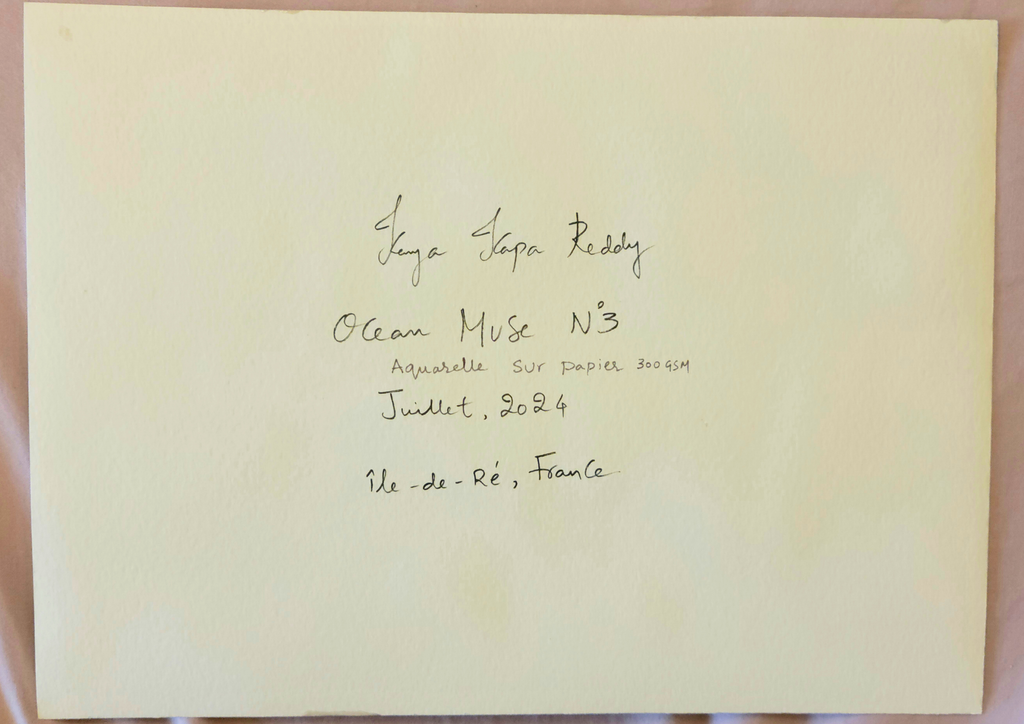 Kenya Kapa Reddy
Ocean Muse N°3
Aquarelle sur papier 300GSM
Juillet, 2024
île-de-Ré, France